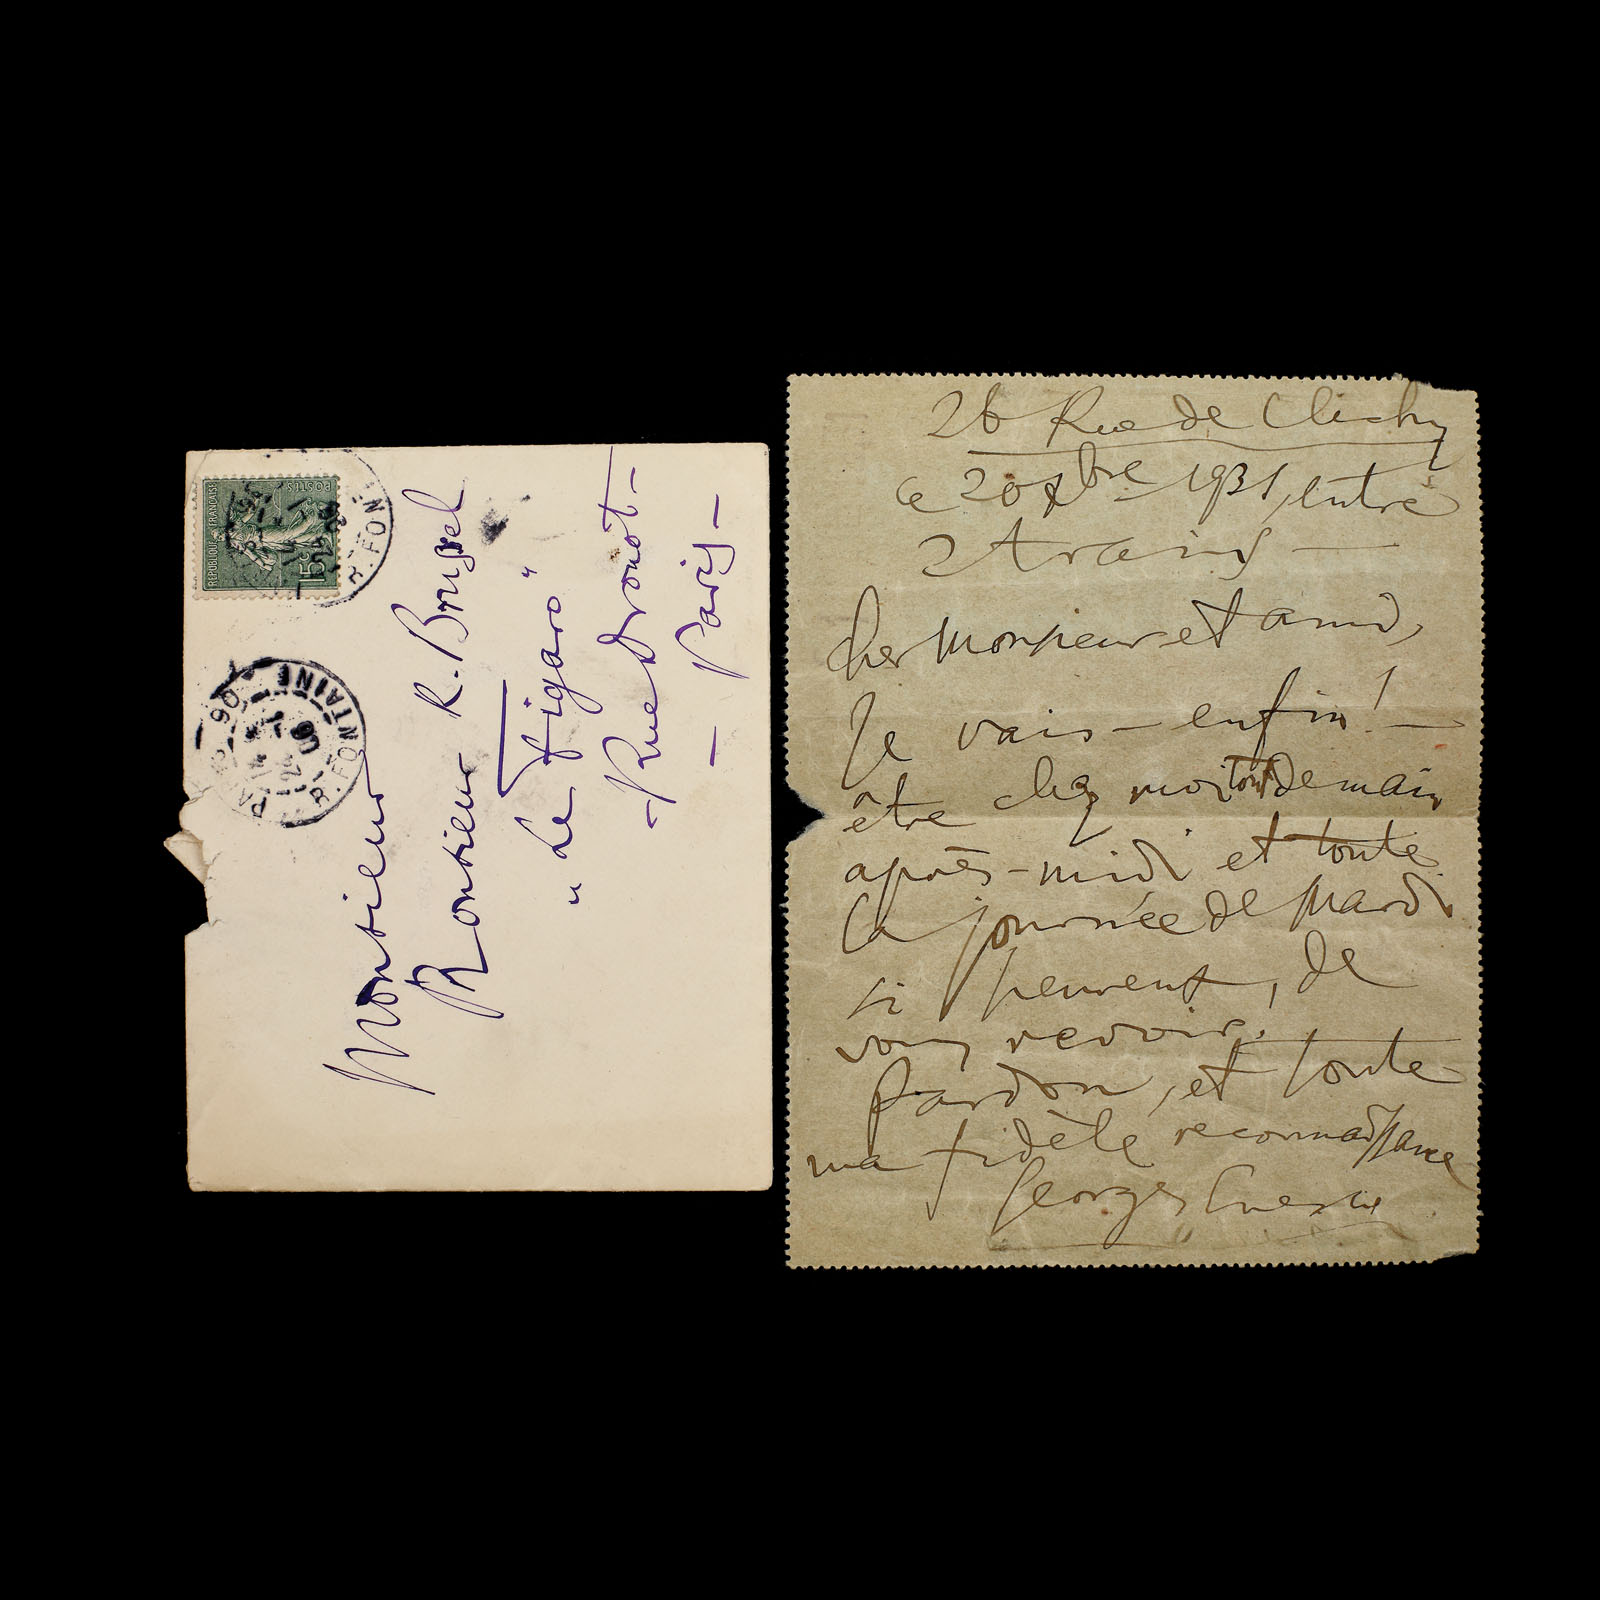 Monsieur
Monsieur R. Brussel
"Le Figaro"
- Rue Drouot -
- Paris -
RÉPUBLIQUE FRANÇAISE
POSTES
15c
R. FONTAINE
26 Rue de Clichy
ce 20 Xbre 1931, entre
2 trains —
Cher Monsieur et ami,
Je vais — enfin! —
être chez moi tout Demain
après-midi et toute
la journée de Mardi
si heureux, de
vous revoir.
Pardon, et toute
ma fidèle reconnaissance
Georges